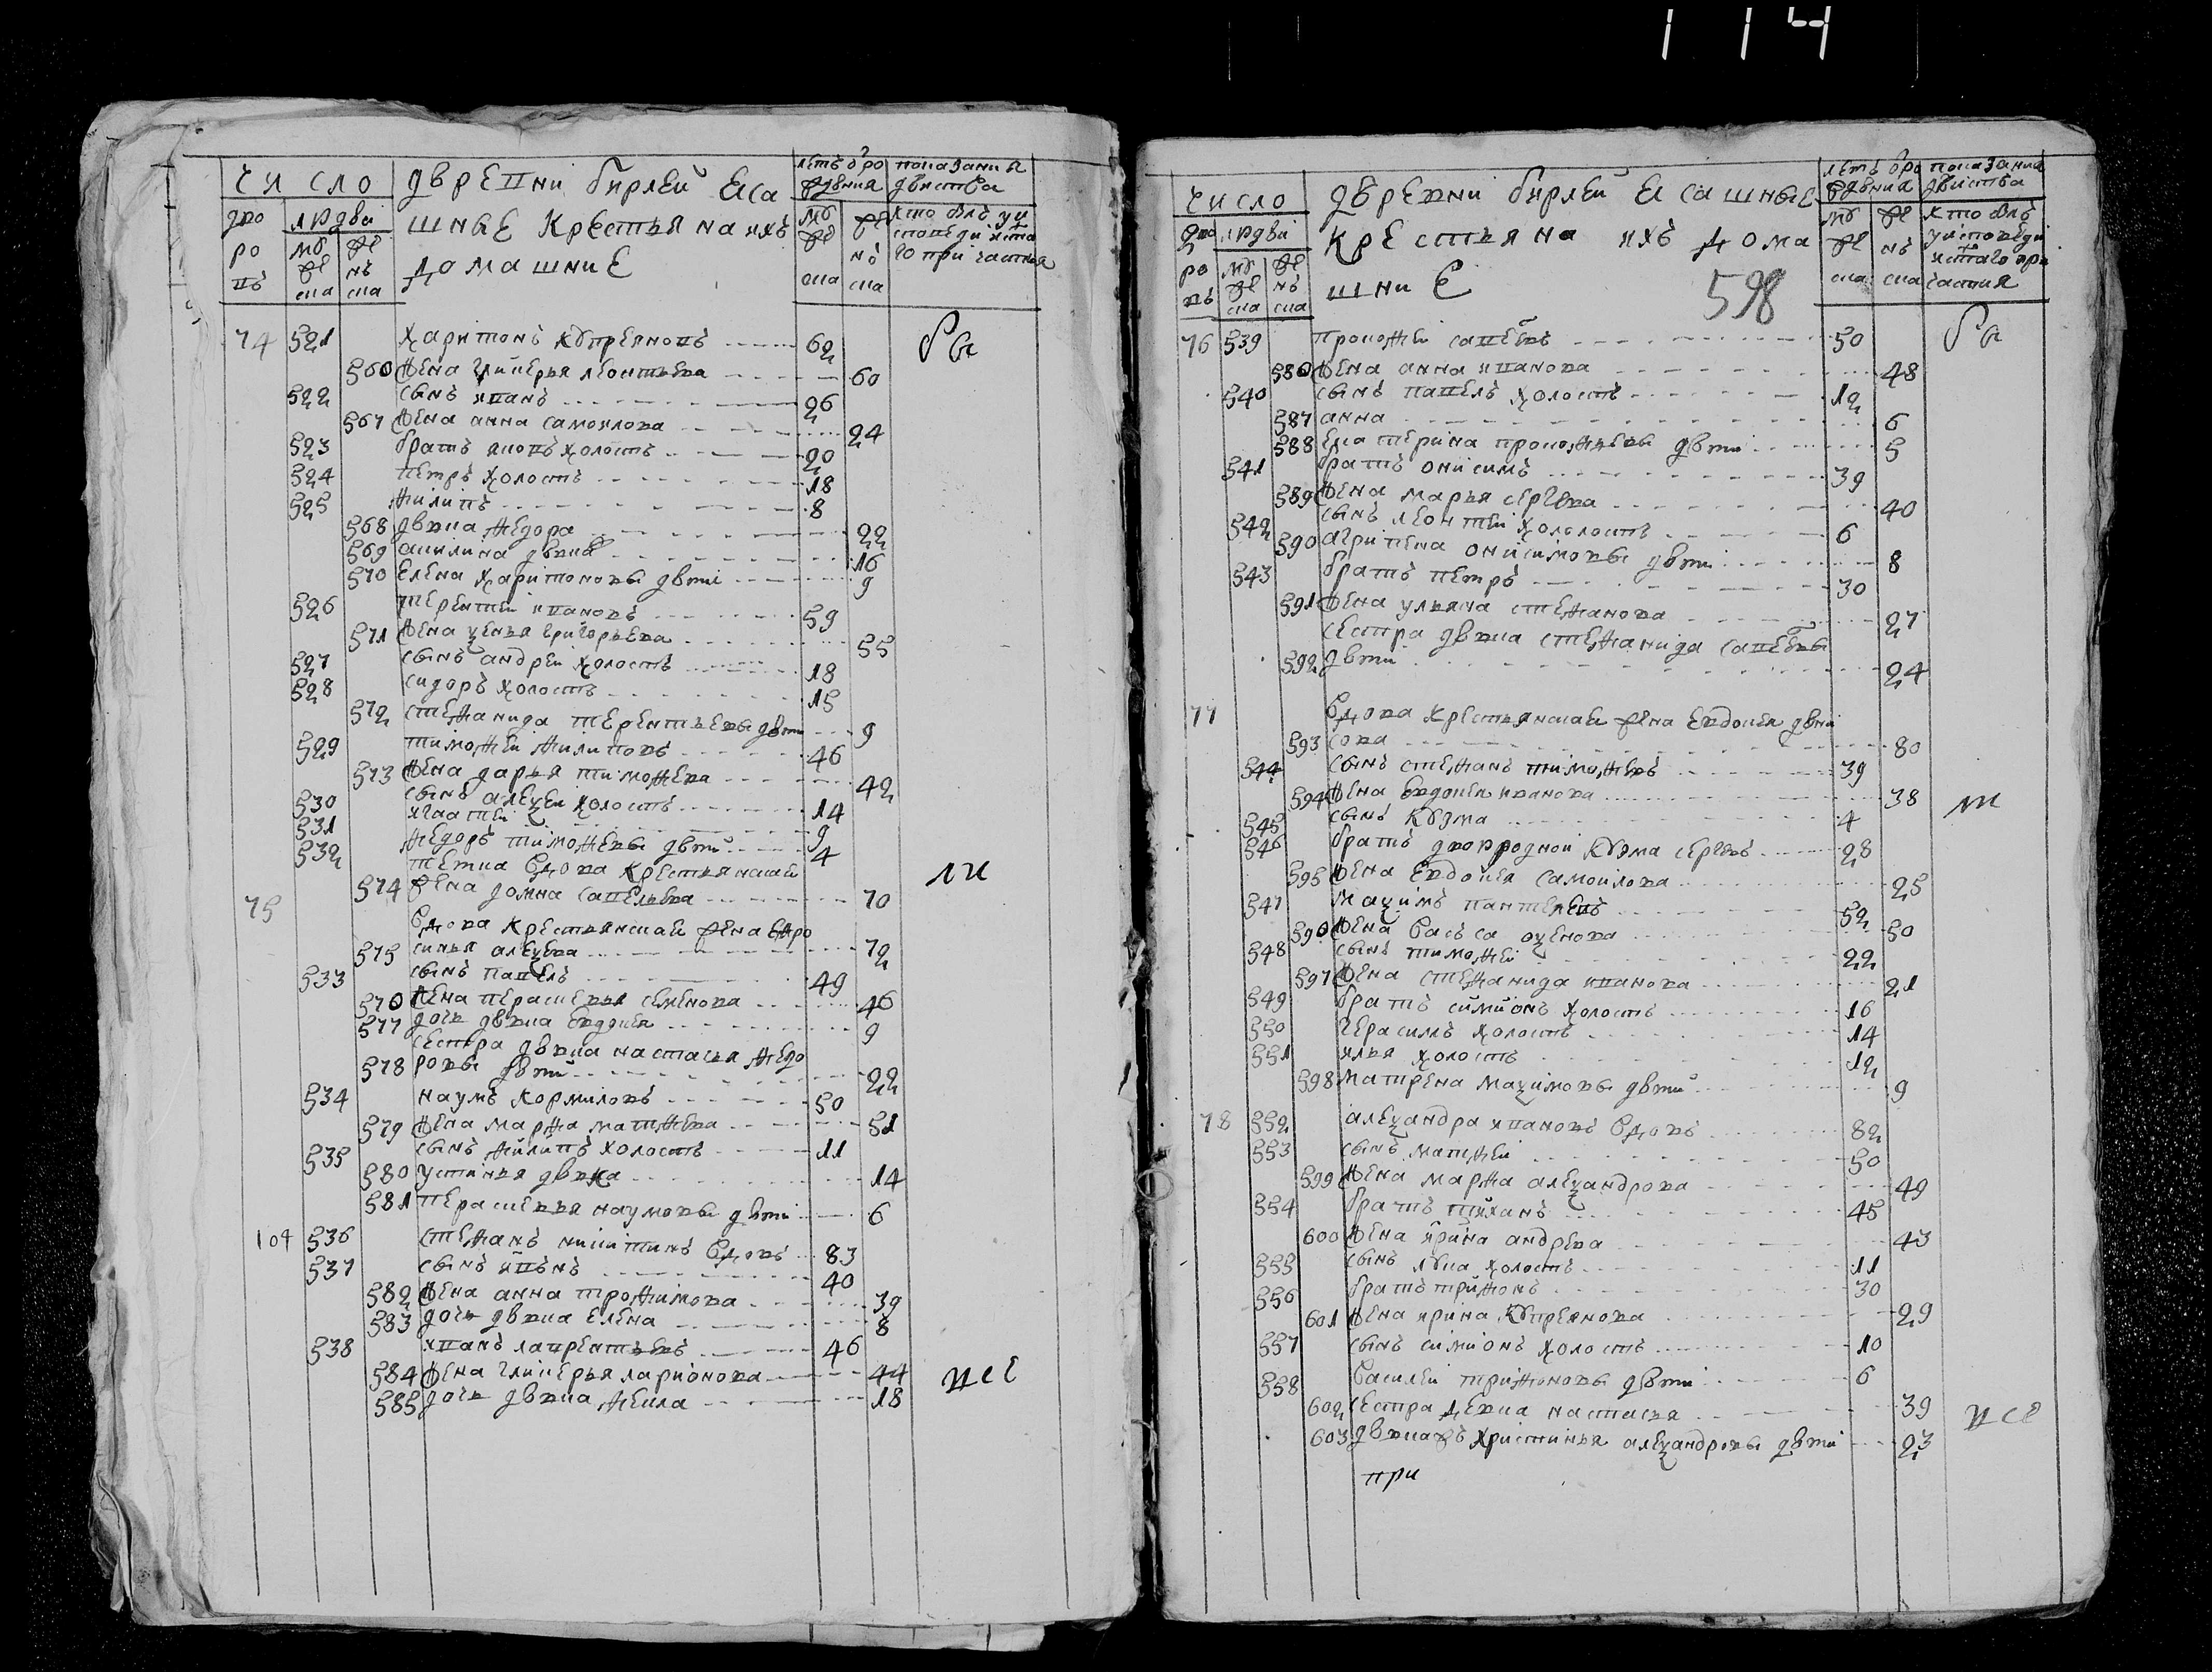 114
число деревни бирлей Еса летъ ѿ ро показание
дво людеи шные крестьяна ихъ ждения действа
ро му же домашние му же кто былъ у и
въ же нь же нь споведи и ста
ска ска ска ска го причастия
74 521 харитонъ куприяновъ 62 бы
566 жена гликерья леонтьева 60
522 сынъ иванъ 26
567 жена анна самоилова 24
523 братъ яковъ холостъ 20
524 петръ холостъ 18
525 филипъ 8
568 девка федора 22
569 акилина девка 16
570 елена харитоновы дети 9
526 терентеи ивановъ 59
571 жена ѯенья григорьева 55
527 сынъ андреи холостъ 18
528 сидоръ холостъ 15
572 стефанида терентьевы дети 9
529 тимофеи филиповъ 46
573 жена дарья тимофева 42
530 сынъ алеѯеи холостъ 14
531 игнатеи 9
532 федоръ тимофевы дети 4
тетка вдова крестьянскаи
574 жена домна савельева 70 ли
75 вдова крестьянскаи жена ефро
575 синья алеѯева 72
533 сынъ павелъ 49
576 жена парасковья семенова 46
577 дочь девка евдокея 9
сестра девка настасья федо
578 ровы дети 22
534 наумъ кормиловъ 50
579 жена марфа матфева 51
535 сынъ филипъ холостъ 11
580 устинья девка 14
581 перасковья наумовы дети 6
104 536 стефанъ никитинъ вдовъ 83
537 сынъ иванъ 40
582 жена анна трофимова 39
583 дочь девка елена 8
538 иванъ лаврентьевъ 46
584 жена гликерья ларионова 44 все
585 дочь девка фекла 18
число деревни бирлей Есашные летъ ѿ ро показание
дво людеи крестьяна ихъ дома ждения действа
ро му же шние му же кто былъ
въ же нь же нь у исповеди
ска ска ска ска и стаго при
частия
598
76 539 прокофеи савевъ 50 бы
586 жена анна иванова 48
540 сынъ павелъ холостъ 12
587 анна 6
588 екатерина прокофьевы дети 5
541 братъ онисимъ 39
589 жена марья сергева 40
542 сынъ леонтеи хололостъ 6
590 агрипена онисимовы дети 8
543 братъ петръ 30
591 жена ульяна стефанова 27
сестра девка стефанида савевы
592 дети 24
77 вдова крестьянскаи жена евдокея дени
593 сова 80
544 сынъ стефанъ тимофевъ 39
594 жена евдокея иванова 38 т
545 сынъ кузма 4
546 братъ двоюродной кузма сергевъ 28
595 жена евдокея самоилова 25
547 маѯимъ пантелевъ 52
596 жена васса оѯенова 50
548 сынъ тимофеи 22
597 жена стефанида иванова 21
549 братъ симионъ холостъ 16
550 герасимъ холостъ 14
551 илья холостъ 12
598 матрена маѯимовы дети 9
78 552 алеѯандра ивановъ вдовъ 82
553 сынъ матфеи 50
599 жена марфа алеѯандрова 49
554 братъ тиханъ 45
600 жена ирина андрева 43
555 сынъ лука холостъ 11
556 братъ трифонъ 30
601 жена ирина куприянова 29
557 сынъ симионъ холостъ 10
558 василеи трифоновы дети 6
602 сестра девка настасья 39 все
603 девка христинья алеѯандровы дети 23
при